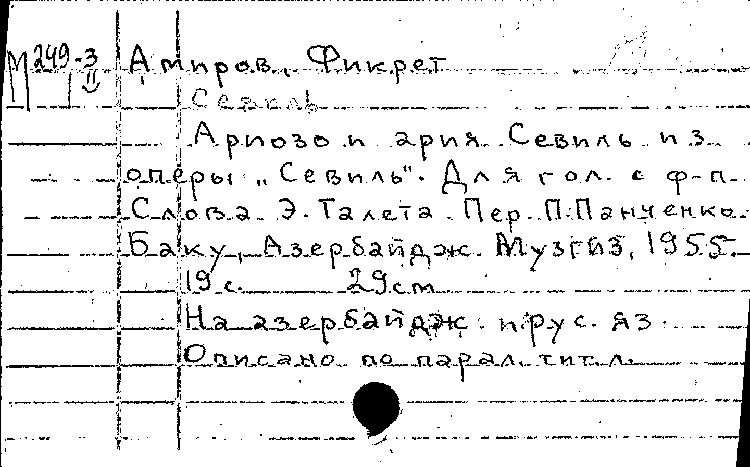 М 249-3 Амиров, Фикрет
II
Севиль
Ариозо и ария Севиль из
оперы „Севиль". Для гол. с ф-п.
Слова Э. Талета. Пер. П. Панченко.
Баку, Азербайдж. Музгиз, 1955.
19 с. 29 cm
На азербайдж. и рус. яз.
Описано по парал. тит. л.